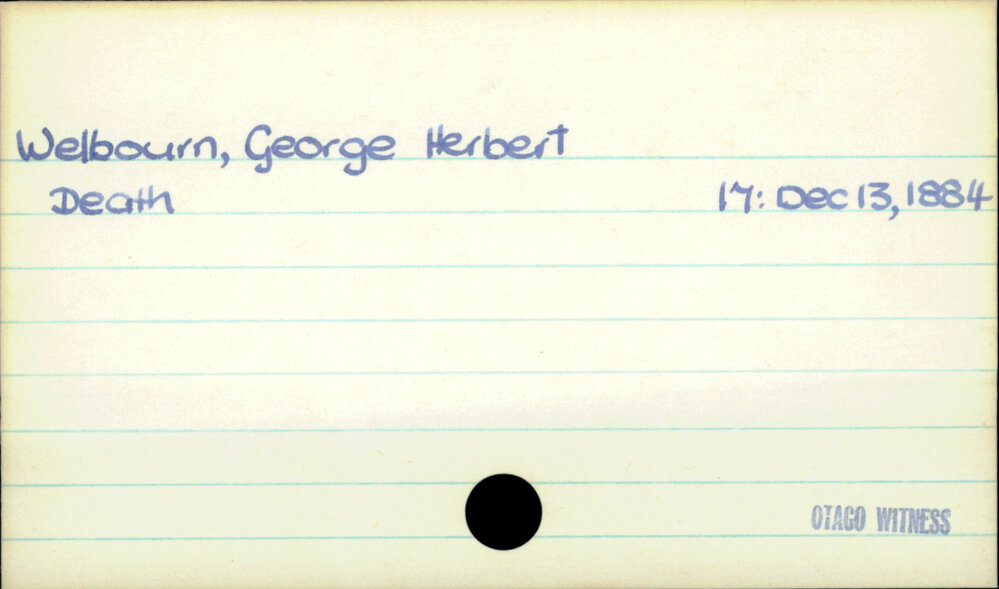 Welbourn, George Herbert
Death 17: Dec 13, 1884
OTAGO WITNESS